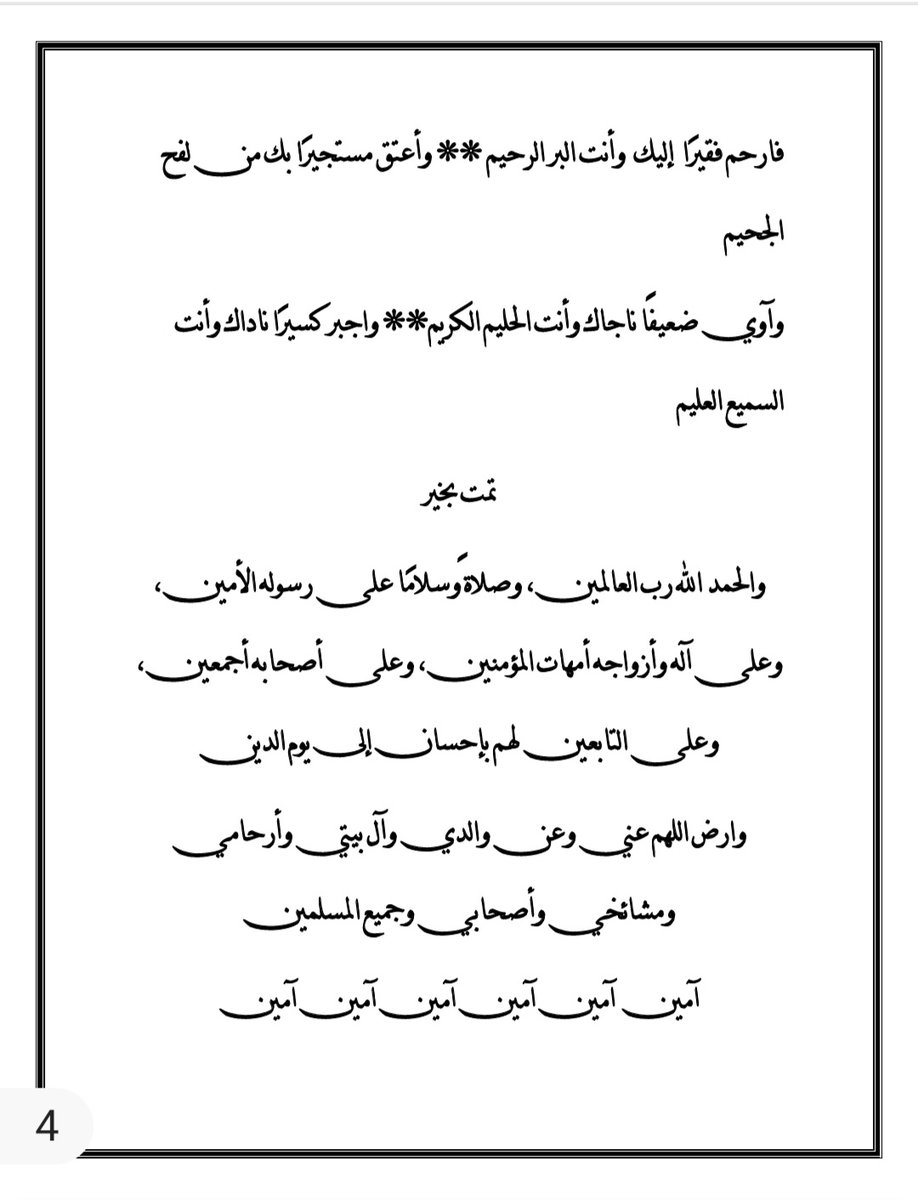 فارحم فقيرًا إليك وأنت البر الرحيم ** وأعتق مستجيرًا بك من لفح
الجحيم
وآوي ضعيفًا ناجاك وأنت الحليم الكريم** واجبر كسيرًا ناداك وأنت
السميع العليم
تمت بخير
والحمد الله رب العالمين، وصلاةً وسلامًا على رسوله الأمين،
وعلى آله وأزواجه أمهات المؤمنين، وعلى أصحابه أجمعين،
وعلى التابعين لهم بإحسان إلى يوم الدين
وارض اللهم عني وعن والدي وآل بيتي وأرحامي
ومشائخي وأصحابي وجميع المسلمين
آمين آمين آمين آمين آمين آمين
4